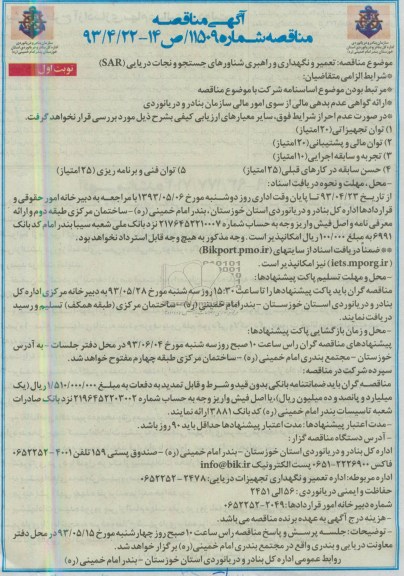 آگهی مناقصه
مناقصه شماره ۱۱۵۰۹/ص۱۴-۹۳/۴/۲۲
نوبت اول
موضوع مناقصه: تعمیر و نگهداری و راهبری شناورهای جستجو و نجات دریایی (SAR)
*شرایط الزامی متقاضیان:
*مرتبط بودن موضوع اساسنامه شرکت با موضوع مناقصه
*ارائه گواهی عدم بدهی مالی از سوی امور مالی سازمان بنادر و دریانوردی
*در صورت عدم احراز شرایط فوق، سایر معیارهای ارزیابی کیفی بشرح ذیل مورد بررسی قرار نخواهد گرفت.
۱) توان تجهیزاتی (۲۰امتیاز)
۲) توان مالی و پشتیبانی (۲۰امتیاز)
۳) تجربه و سابقه اجرایی (۱۰امتیاز)
۴) حسن سابقه در کارهای قبلی (۲۵امتیاز) ۵) توان فنی و برنامه ریزی (۲۵امتیاز)
-محل، مهلت و نحوه دریافت اسناد:
از تاریخ ۹۳/۰۴/۲۳ تا پایان وقت اداری روز دوشنبه مورخ ۱۳۹۳/۰۵/۰۶ با مراجعه به دبیرخانه امور حقوقی و
قراردادها اداره کل بنادر و دریانوردی استان خوزستان، بندر امام خمینی (ره) -ساختمان مرکزی طبقه دوم و ارائه
معرفی نامه و اصل فیش واریز وجه به حساب شماره ۲۱۷۶۴۵۲۲۱۰۰۰۷ نزد بانک ملی شعبه سیبا بندر امام کد بانک
۶۹۹۱ به مبلغ ۱۰۰/۰۰۰ ریال امکانپذیر است. وجه مذکور به هیچ وجه قابل استرداد نخواهد بود.
**ضمناً دریافت اسناد از سایتهای (Bikport.pmo.ir)
(iets.mporg.ir) نیز امکانپذیر است.
-محل و مهلت تسلیم پاکت پیشنهادها:
مناقصه گران باید پاکت پیشنهادها را تا ساعت ۱۵:۳۰ روز سه شنبه مورخ ۹۳/۰۵/۲۸ به دبیرخانه مرکزی اداره کل
بنادر و دریانوردی استان خوزستان -بندر امام خمینی (ره) -ساختمان مرکزی (طبقه همکف) تسلیم و رسید
دریافت نمایند.
-محل و زمان بازگشایی پاکت پیشنهادها:
پیشنهادهای مناقصه گران راس ساعت ۱۰ صبح روز سه شنبه مورخ ۹۳/۰۶/۰۴ در محل دفتر جلسات -به آدرس
خوزستان -مجتمع بندری امام خمینی (ره) -ساختمان مرکزی طبقه چهارم مفتوح خواهد شد.
سپرده شرکت در مناقصه:
مناقصه گران باید ضمانتنامه بانکی بدون قید و شرط و قابل تمدید به دفعات به مبلغ ۱/۵۱۰/۰۰۰/۰۰۰ ریال (یک
میلیارد و پانصد و ده میلیون ریال)، یا اصل فیش واریز وجه به حساب شماره ۲۱۹۶۴۵۲۲۰۳۰۰۲ نزد بانک صادرات
شعبه تاسیسات بندر امام خمینی (ره) کد بانک ۳۸۸۱ ارائه نمایند.
-مدت اعتبار پیشنهادها: مدت اعتبار پیشنهادها حداقل باید ۹۰ روز باشد.
-آدرس دستگاه مناقصه گزار:
اداره کل بنادر و دریانوردی استان خوزستان -بندر امام خمینی (ره) -صندوق پستی ۱۵۹ تلفن ۴۰۰۱-۰۶۵۲۲۵۲
فاکس ۲۲۲۶۹۰۰-۰۶۵۱ پست الکترونیک info@bik.ir
اداره مربوطه: اداره تعمیر و نگهداری تجهیزات دریایی: ۲۴۷۸-۰۶۵۲۲۵۲
حفاظت و ایمنی دریانوردی: ۵۶ الی ۲۴۵۱
شماره دبیرخانه امور قراردادها: ۲۰۴۹-۰۶۵۲۲۵۲
-هزینه درج آگهی به عهده برنده مناقصه می باشد.
-توضیحات: جلسه پرسش و پاسخ مناقصه راس ساعت ۱۰ صبح روز چهارشنبه مورخ ۹۳/۰۵/۱۵ در محل دفتر
معاونت دریایی و بندری واقع در مجتمع بندری امام خمینی (ره) برگزار خواهد شد.
روابط عمومی اداره کل بنادر و دریانوردی استان خوزستان -بندر امام خمینی (ره)